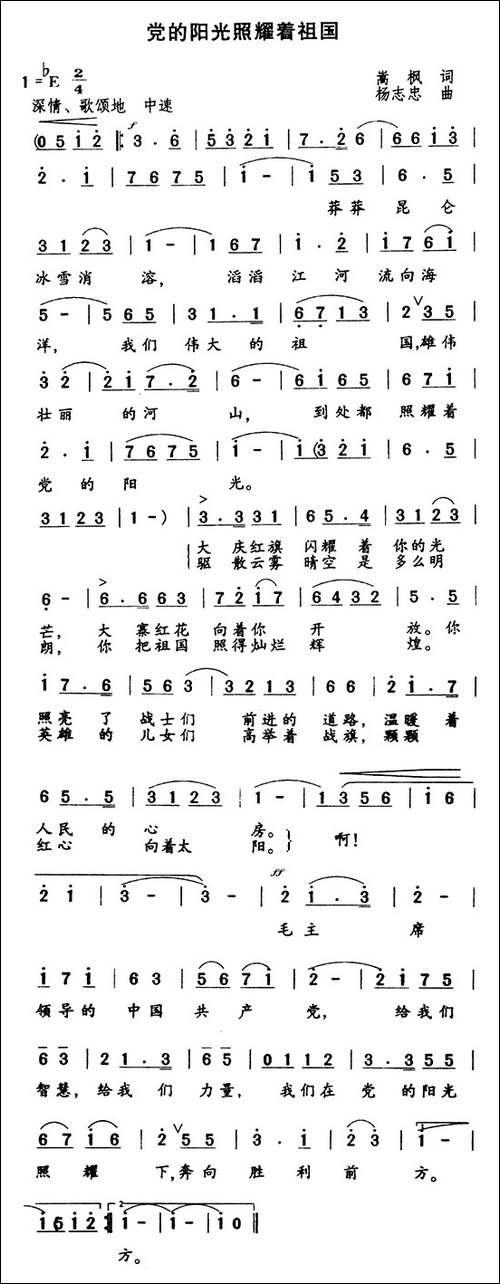 党的阳光照耀着祖国
1=♭E 2/4 嵩枫 词
深情、歌颂地 中速 杨志忠 曲
(0 5 1 2 ‖: 3 . 6 | 5 3 2 1 | 7 . 2 6 | 6 6 1 3 |
2 . 1 | 7 6 7 5 | 1 - | 1 5 3 | 6 . 5 |
莽莽 昆 仑
3 1 2 3 | 1 - | 1 6 7 | 1 . 2 | 1 7 6 1 |
冰雪消 溶, 滔滔 江 河 流向海
5 - | 5 6 5 | 3 1 . 1 | 6 7 1 3 | 2 ∨ 3 5 |
洋, 我们 伟大 的 祖 国,雄伟
3 2 | 2 1 7 . 2 | 6 - | 6 1 6 5 | 6 7 1 |
壮丽 的河 山, 到处都 照耀着
2 . 1 | 7 6 7 5 | 1 - | 1 (3 2 1 | 6 . 5 |
党 的 阳 光。
3 1 2 3 | 1 - ) | 3 . 3 3 1 | 6 5 . 4 | 3 1 2 3 |
大 庆红旗 闪耀 着 你的光
驱 散云雾 晴空 是 多么明
6 - | 6 . 6 6 3 | 7 2 1 7 | 6 4 3 2 | 5 . 5 |
芒, 大 寨红花 向着你 开 放。你
朗, 你 把祖国 照得灿烂 辉 煌。
1 7 . 6 | 5 6 3 | 3 2 1 3 | 6 6 | 2 1 . 7 |
照亮 了 战士们 前进的 道路, 温暖 着
英雄 的 儿女们 高举着 战旗, 颗颗
6 5 . 5 | 3 1 2 3 | 1 - | 1 3 5 6 | 1 6 |
人民 的 心 房。 啊!
红心 向着太 阳。
2 1 | 3 - | 3 - | 2 1 . 3 | 2 - |
ff
毛 主 席
1 7 1 | 6 3 | 5 6 7 1 | 2 - | 2 1 7 5 |
领导的 中国 共 产 党, 给我们
6 3 | 2 1 . 3 | 6 5 | 0 1 1 2 | 3 . 3 5 5 |
智慧, 给我 们 力量, 我们在 党 的阳光
6 7 1 6 | 2 ∨ 5 5 | 3 . 1 | 2 3 | 1 - |
照 耀 下,奔向 胜利 前 方。
1 5 1 2 :‖ 2 1 - | 1 - | 1 0 ‖
方。